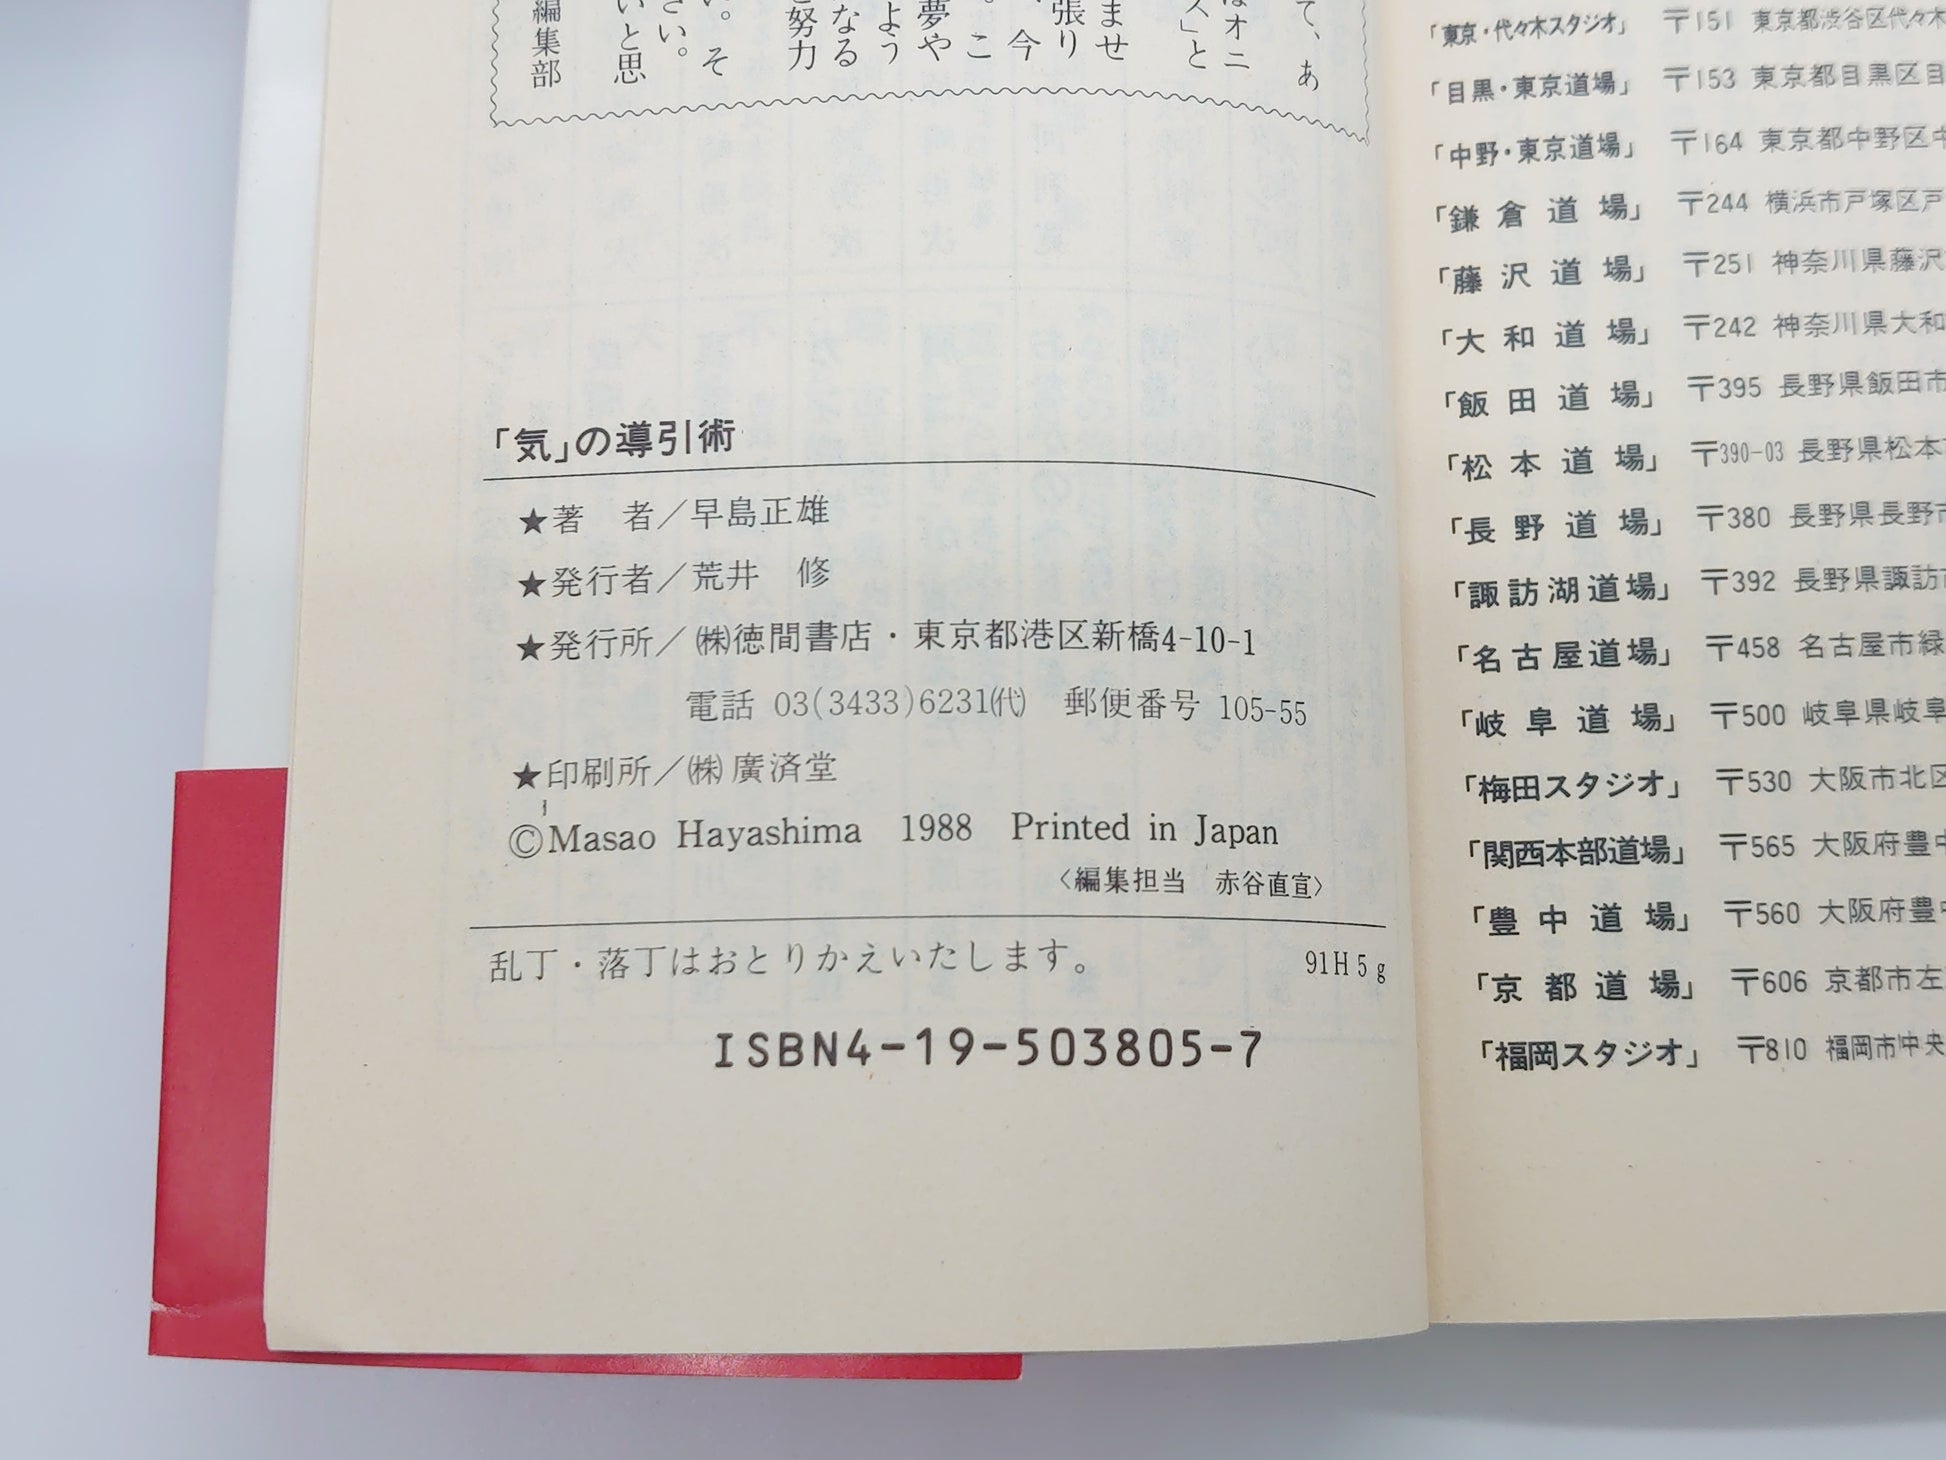 て、あ
はオニ
ス」と
ませ
張り
、今
。こ
夢や
よう
なる
と努力
い。そ
さい。
いと思
編集部
「気」の導引術
★著　者／早島正雄
★発行者／荒井　修
★発行所／㈱徳間書店・東京都港区新橋4-10-1
電話 03(3433)6231㈹　郵便番号 105-55
★印刷所／㈱廣済堂
©Masao Hayashima 1988 Printed in Japan
〈編集担当　赤谷直宣〉
乱丁・落丁はおとりかえいたします。 91H5g
ISBN4-19-503805-7
「東京・代々木スタジオ」 〒151 東京都渋谷区代々木
「目黒・東京道場」 〒153 東京都目黒区目
「中野・東京道場」 〒164 東京都中野区中
「鎌倉道場」 〒244 横浜市戸塚区戸
「藤沢道場」 〒251 神奈川県藤沢
「大和道場」 〒242 神奈川県大和
「飯田道場」 〒395 長野県飯田市
「松本道場」 〒390-03 長野県松本
「長野道場」 〒380 長野県長野市
「諏訪湖道場」 〒392 長野県諏訪
「名古屋道場」 〒458 名古屋市緑
「岐阜道場」 〒500 岐阜県岐阜
「梅田スタジオ」 〒530 大阪市北区
「関西本部道場」 〒565 大阪府豊中
「豊中道場」 〒560 大阪府豊中
「京都道場」 〒606 京都市左
「福岡スタジオ」 〒810 福岡市中央